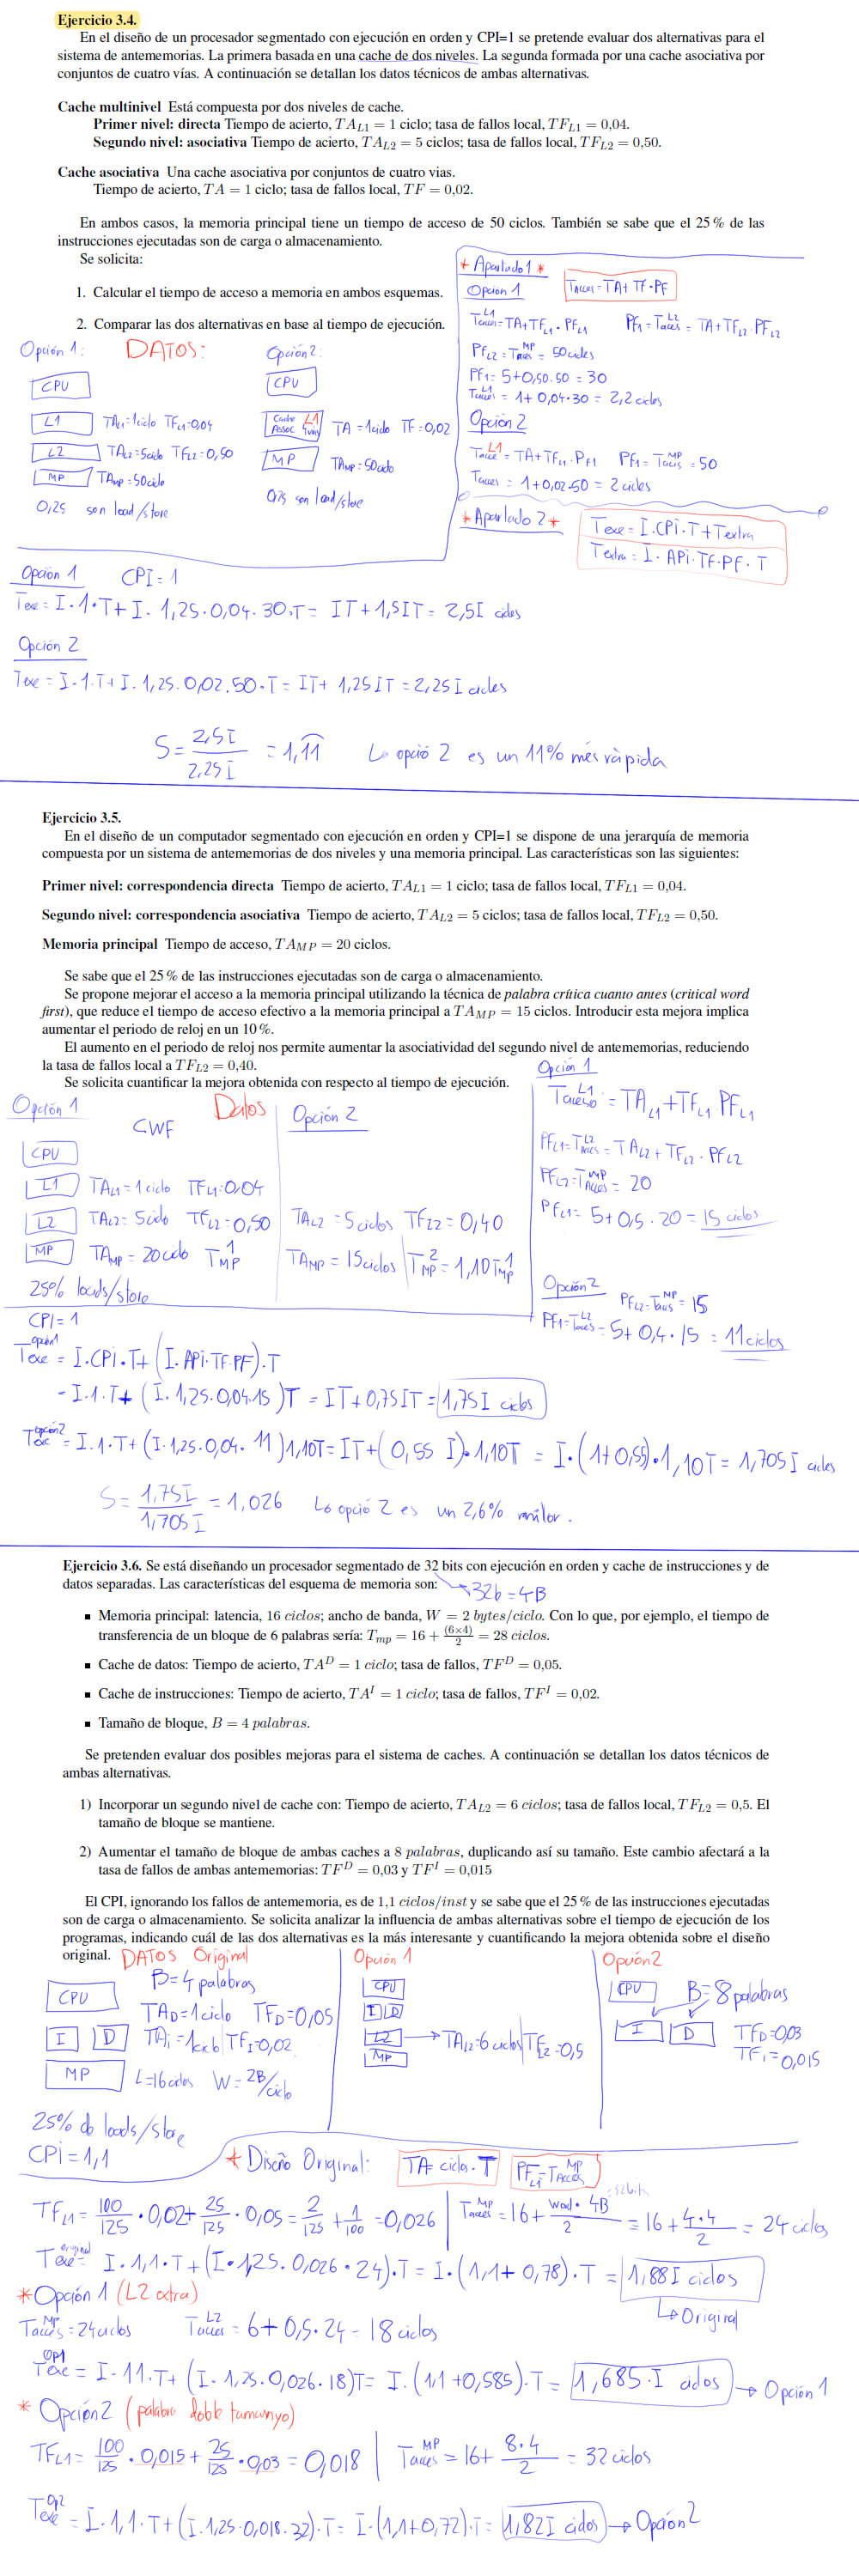 Ejercicio 3.4.
En el diseño de un procesador segmentado con ejecución en orden y CPI=1 se pretende evaluar dos alternativas para el
sistema de antememorias. La primera basada en una cache de dos niveles. La segunda formada por una cache asociativa por
conjuntos de cuatro vías. A continuación se detallan los datos técnicos de ambas alternativas.
Cache multinivel Está compuesta por dos niveles de cache.
Primer nivel: directa Tiempo de acierto, TA_L1 = 1 ciclo; tasa de fallos local, TF_L1 = 0,04.
Segundo nivel: asociativa Tiempo de acierto, TA_L2 = 5 ciclos; tasa de fallos local, TF_L2 = 0,50.
Cache asociativa Una cache asociativa por conjuntos de cuatro vias.
Tiempo de acierto, TA = 1 ciclo; tasa de fallos local, TF = 0,02.
En ambos casos, la memoria principal tiene un tiempo de acceso de 50 ciclos. También se sabe que el 25 % de las
instrucciones ejecutadas son de carga o almacenamiento.
Se solicita:
1. Calcular el tiempo de acceso a memoria en ambos esquemas.
2. Comparar las dos alternativas en base al tiempo de ejecución.
Opción 1: DATOS: Opción 2:
CPU CPU
L1 TA_L1=1ciclo TF_L1=0,04
L2 TA_L2=5ciclo TF_L2=0,50
MP TA_MP=50ciclo
0,25 son load/store
Cache L1
Assoc 4vias TA=1ciclo TF=0,02
MP TA_MP=50ciclo
0,25 son load/store
* Apartado 1 *
Opcion 1 T_acces = TA + TF · PF
T_acces^L1 = TA + TF_L1 · PF_L1 PF_1 = T_acces^L2 = TA + TF_L2 · PF_L2
PF_L2 = T_acces^MP = 50 ciclos
PF_1 = 5+0,50·50 = 30
T_acces^L1 = 1+0,04·30 = 2,2 ciclos
Opción 2
T_acces^L1 = TA + TF_L1 · PF_1 PF_1 = T_acces^MP = 50
T_acces = 1+0,02·50 = 2 ciclos
* Apartado 2 *
T_exe = I·CPI·T + T_extra
T_extra = I · API·TF·PF · T
Opción 1 CPI = 1
T_exe = I·1·T + I · 1,25·0,04·30·T = IT + 1,5IT = 2,5I ciclos
Opción 2
T_exe = I·1·T + I·1,25·0,02·50·T = IT + 1,25IT = 2,25I ciclos
S = 2,5I / 2,25I = 1,11 La opció 2 es un 11% més ràpida
Ejercicio 3.5.
En el diseño de un computador segmentado con ejecución en orden y CPI=1 se dispone de una jerarquía de memoria
compuesta por un sistema de antememorias de dos niveles y una memoria principal. Las características son las siguientes:
Primer nivel: correspondencia directa Tiempo de acierto, TA_L1 = 1 ciclo; tasa de fallos local, TF_L1 = 0,04.
Segundo nivel: correspondencia asociativa Tiempo de acierto, TA_L2 = 5 ciclos; tasa de fallos local, TF_L2 = 0,50.
Memoria principal Tiempo de acceso, TA_MP = 20 ciclos.
Se sabe que el 25 % de las instrucciones ejecutadas son de carga o almacenamiento.
Se propone mejorar el acceso a la memoria principal utilizando la técnica de palabra crítica cuanto antes (critical word
first), que reduce el tiempo de acceso efectivo a la memoria principal a TA_MP = 15 ciclos. Introducir esta mejora implica
aumentar el periodo de reloj en un 10 %.
El aumento en el periodo de reloj nos permite aumentar la asociatividad del segundo nivel de antememorias, reduciendo
la tasa de fallos local a TF_L2 = 0,40.
Se solicita cuantificar la mejora obtenida con respecto al tiempo de ejecución.
Opción 1 CWF Datos Opción 2
CPU
L1 TA_L1=1ciclo TF_L1=0,04
L2 TA_L2=5ciclo TF_L2=0,50 TA_L2=5ciclos TF_L2=0,40
MP TA_MP=20ciclo T^1_MP TA_MP=15ciclos T^2_MP=1,10T^1_MP
25% loads/store
CPI=1
Opción 1
T_acceso^L1 = TA_L1 + TF_L1 · PF_L1
PF_L1 = T_acces^L2 = TA_L2 + TF_L2 · PF_L2
PF_L2 = T_acces^MP = 20
PF_L1 = 5+0,5·20 = 15 ciclos
Opción 2 PF_L2 = T_acces^MP = 15
PF_1 = T_acces^L2 = 5+0,4·15 = 11 ciclos
T_exe^opción1 = I·CPI·T + (I·API·TF·PF)·T
= I·1·T + (I·1,25·0,04·15)T = IT + 0,75IT = 1,75I ciclos
T_exe^opción2 = I·1·T + (I·1,25·0,04·11)1,10T = IT + (0,55 I)·1,10T = I·(1+0,55)·1,10T = 1,705I ciclos
S = 1,75I / 1,705I = 1,026 La opció 2 es un 2,6% millor.
Ejercicio 3.6. Se está diseñando un procesador segmentado de 32 bits con ejecución en orden y cache de instrucciones y de
datos separadas. Las características del esquema de memoria son:
32b = 4B
■ Memoria principal: latencia, 16 ciclos; ancho de banda, W = 2 bytes/ciclo. Con lo que, por ejemplo, el tiempo de
transferencia de un bloque de 6 palabras sería: T_mp = 16 + (6×4)/2 = 28 ciclos.
■ Cache de datos: Tiempo de acierto, TA^D = 1 ciclo; tasa de fallos, TF^D = 0,05.
■ Cache de instrucciones: Tiempo de acierto, TA^I = 1 ciclo; tasa de fallos, TF^I = 0,02.
■ Tamaño de bloque, B = 4 palabras.
Se pretenden evaluar dos posibles mejoras para el sistema de caches. A continuación se detallan los datos técnicos de
ambas alternativas.
1) Incorporar un segundo nivel de cache con: Tiempo de acierto, TA_L2 = 6 ciclos; tasa de fallos local, TF_L2 = 0,5. El
tamaño de bloque se mantiene.
2) Aumentar el tamaño de bloque de ambas caches a 8 palabras, duplicando así su tamaño. Este cambio afectará a la
tasa de fallos de ambas antememorias: TF^D = 0,03 y TF^I = 0,015
El CPI, ignorando los fallos de antememoria, es de 1,1 ciclos/inst y se sabe que el 25 % de las instrucciones ejecutadas
son de carga o almacenamiento. Se solicita analizar la influencia de ambas alternativas sobre el tiempo de ejecución de los
programas, indicando cuál de las dos alternativas es la más interesante y cuantificando la mejora obtenida sobre el diseño
original.
DATOS Original Opción 1 Opción2
B=4 palabras
CPU TA_D=1ciclo TF_D=0,05
I D TA_i=1ciclo TF_I=0,02
MP L=16ciclos W=2B/ciclo
CPU
I D
L2 → TA_L2=6 ciclos TF_L2=0,5
MP
CPU B=8palabras
I D TF_D=0,03
TF_i=0,015
25% de loads/store
CPI=1,1
* Diseño Original: TA = ciclos·T PF_L1=T_acces^MP
TF_L1 = 100/125 · 0,02 + 25/125 · 0,05 = 2/125 + 1/100 = 0,026 T_acces^MP = 16 + word·4B/2 = 16 + 4·4/2 = 24 ciclos
32bits
T_exe^original = I·1,1·T + (I·1,25·0,026·24)·T = I·(1,1+0,78)·T = 1,88I ciclos
↳ Original
* Opción 1 (L2 extra)
T_acces^MP = 24ciclos T_acces^L2 = 6+0,5·24 = 18 ciclos
T_exe^Op1 = I·1,1·T + (I·1,25·0,026·18)T = I·(1,1+0,585)·T = 1,685·I ciclos → Opción 1
* Opción 2 (palabra doble tamanyo)
TF_L1 = 100/125 · 0,015 + 25/125 · 0,03 = 0,018 T_acces^MP = 16 + 8·4/2 = 32 ciclos
T_exe^Op2 = I·1,1·T + (I·1,25·0,018·32)·T = I·(1,1+0,72)·T = 1,82I ciclos → Opción 2